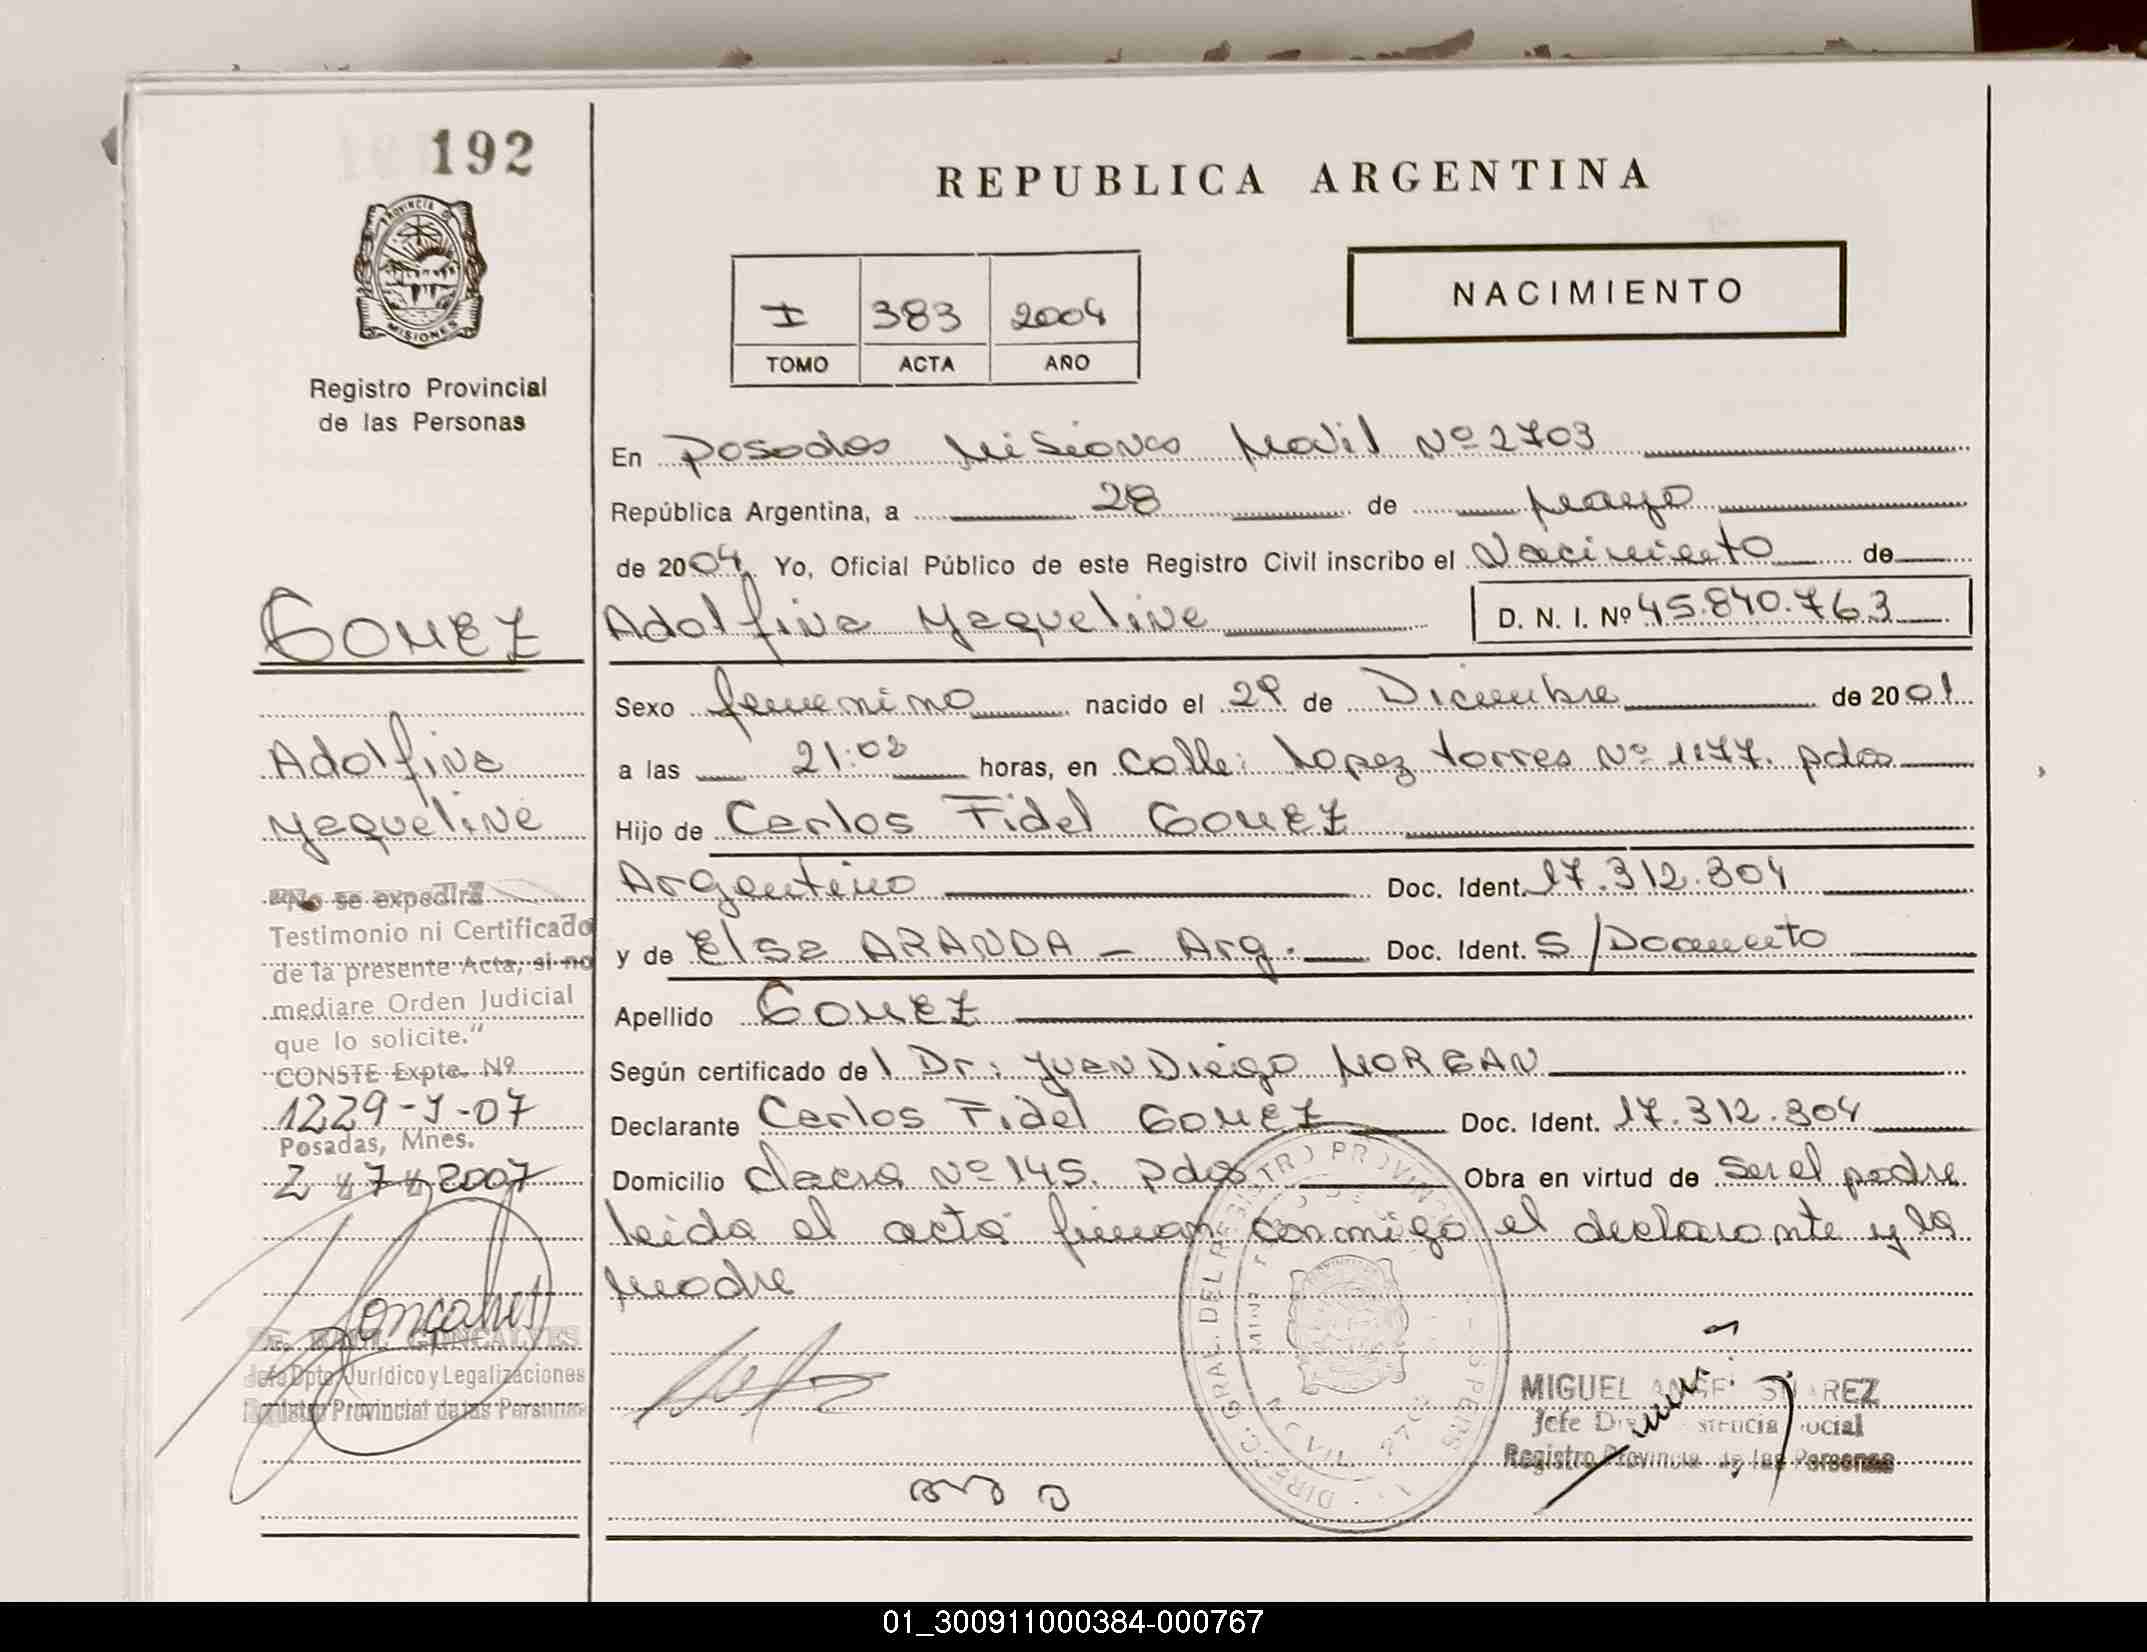 192
PROVINCIA DE
MISIONES
Registro Provincial
de las Personas
REPUBLICA ARGENTINA
I 383 2004
TOMO ACTA AÑO
NACIMIENTO
En Posadas Misiones Movil Nº 2703
República Argentina, a 28 de Mayo
de 2004. Yo, Oficial Público de este Registro Civil inscribo el Nacimiento de
Adolfina Yaqueline D. N. I. Nº 45.840.763
Sexo femenino nacido el 29 de Diciembre de 2001
a las 21:02 horas, en Calle: Lopez torres Nº 1177. pdas
Hijo de Carlos Fidel GOMEZ
Argentino Doc. Ident. 17.312.804
y de Elsa ARANDA - Arg. Doc. Ident. S/Documento
Apellido GOMEZ
Según certificado del Dr: Juan Diego MORGAN
Declarante Carlos Fidel GOMEZ Doc. Ident. 17.312.804
Domicilio chacra Nº 145. pdas Obra en virtud de Ser el padre
leida el acta firman conmigo el declarante y la
Madre
GOMEZ
Adolfina
Yaqueline
"No se expedirá
Testimonio ni Certificado
de la presente Acta, si no
mediare Orden Judicial
que lo solicite."
CONSTE Expte. Nº
1229-J-07
Posadas, Mnes.
2 7 2007
GONCALVES
Jefe Dpto Jurídico y Legalizaciones
Registro Provincial de las Personas
DIREC. GRAL. DEL REGISTRO PROVINCIAL
MOVIL 2703
MIGUEL ANGEL SUAREZ
Jefe
Registro Provincial de las Personas
01_300911000384-000767